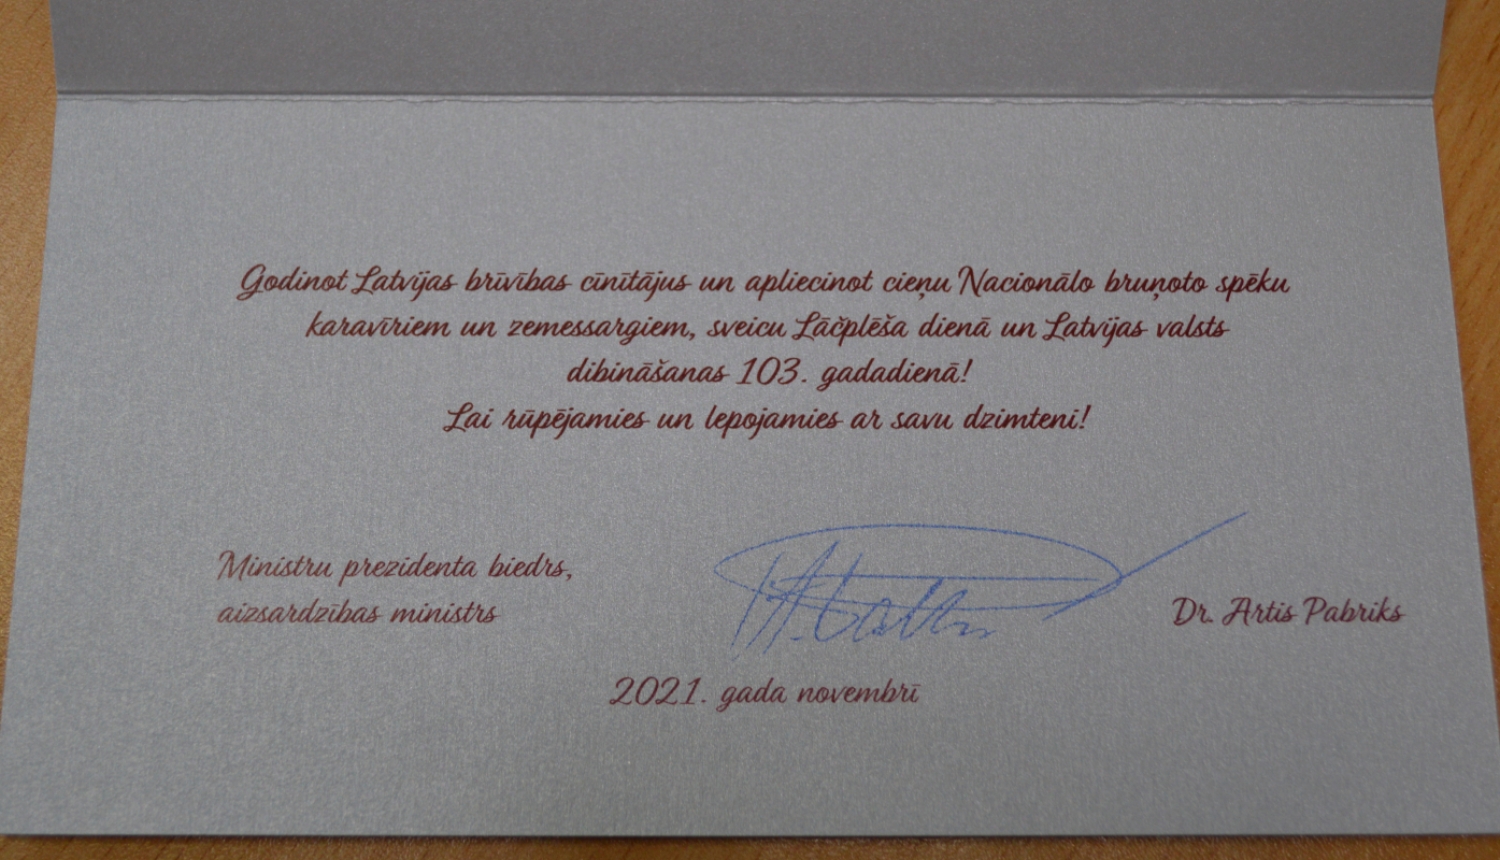 Godinot Latvijas brīvības cīnītājus un apliecinot cieņu Nacionālo bruņoto spēku
karavīriem un zemessargiem, sveicu Lāčplēša dienā un Latvijas valsts
dibināšanas 103. gadadienā!
Lai rūpējamies un lepojamies ar savu dzimteni!
Ministru prezidenta biedrs,
aizsardzības ministrs
Dr. Artis Pabriks
2021. gada novembrī